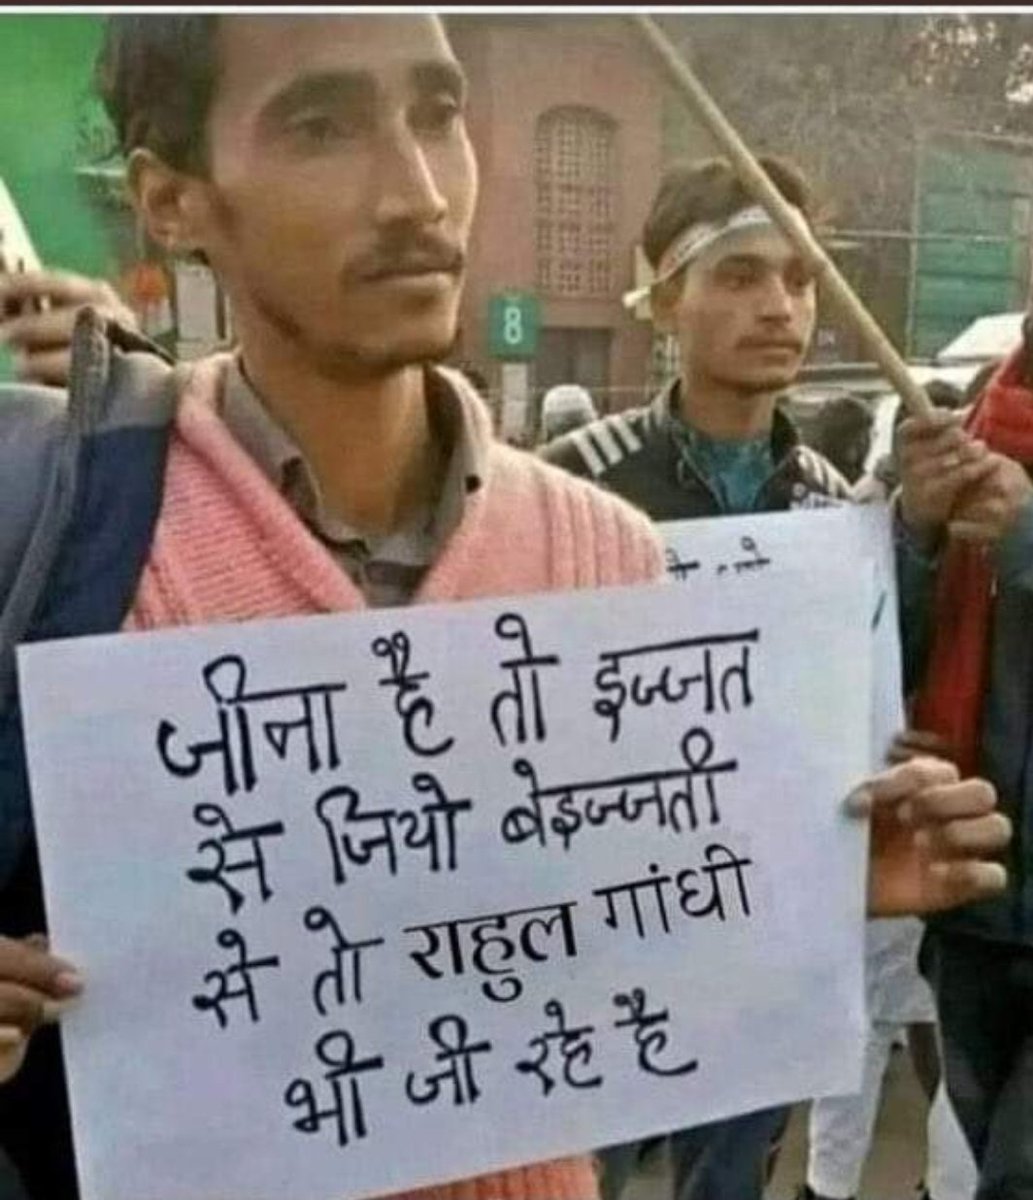 8
जीना है तो इज्जत
से जियो बेइज्जती
से तो राहुल गांधी
भी जी रहे है